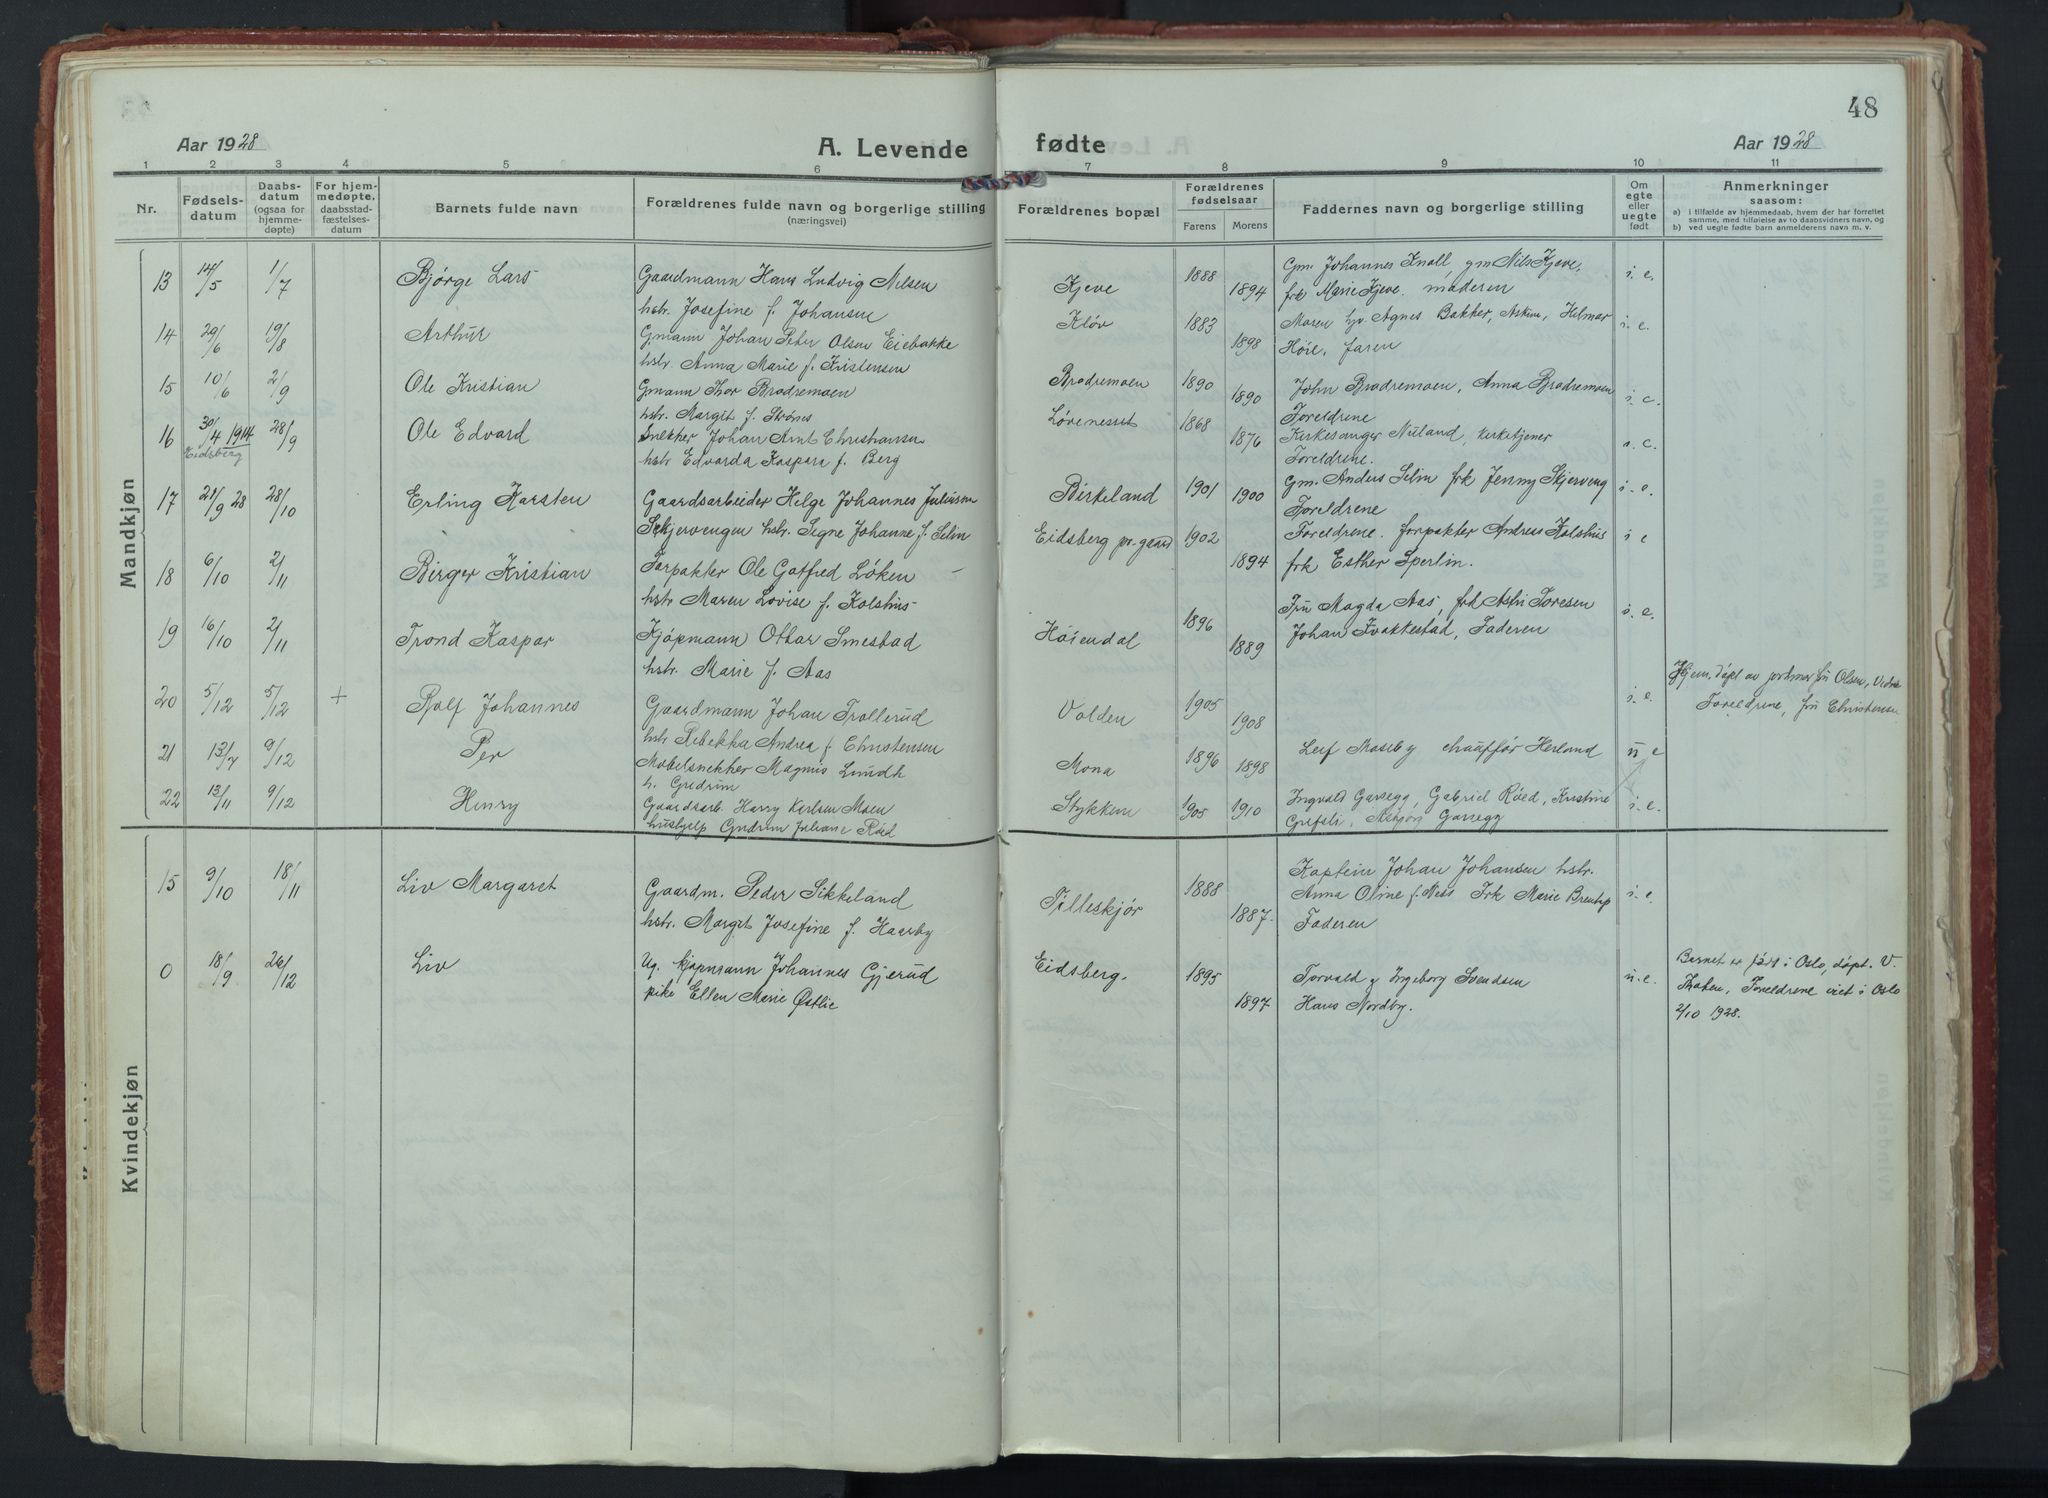 48
Aar 1928
A. Levende fødte
Aar 1928
1 2 3 4 5 6 7 8 9 10 11
Nr.
Fødselsdatum
Daabsdatum (ogsaa for hjemmedøpte)
For hjemmedøpte, daabsstadfæstelsesdatum
Barnets fulde navn
Forældrenes fulde navn og borgerlige stilling (næringsvei)
Forældrenes bopæl
Forældrenes fødselsaar
Farens Morens
Faddernes navn og borgerlige stilling
Om egte eller uegte født
Anmerkninger saasom:
a) i tilfælde av hjemmedaab, hvem der har forrettet samme, med tilføielse av to daabsvidners navn, og
b) ved uegte fødte barn anmelderens navn m. v.
Mandkjøn
13 14/5 1/7 Bjørge Lars Gaardmann Hans Ludvig Nilsen Kjeve 1888 Gm. Johannes Knoll, gm Nils Kjeve, i. e.
hstr. Josefine f. Johansen 1894 frk Marie Kjeve. moderen
14 29/6 19/8 Arthur G.mann Johan Peter Olsen Eiebakke Kløv 1883 Maren hv. Agnes Bakker, Askim, Helmar i. e.
hstr. Anna Marie f. Kristensen 1898 Høie, faren
15 10/6 2/9 Ole Kristian Gmann Thor Brødremoen Brødremoen 1890 1890 John Brødremoen, Anna Brødremoen i. e.
hstr. Margit f. Strønes Foreldrene
16 30/4 1914 28/9 Ole Edvard Snekker Johan Amt Christiansen Løvenesset 1868 1876 Kirkesanger Nuland, kirketjener
Eidsberg hstr Edvarda Kaspara f. Berg Foreldrene.
17 21/9 28 28/10 Erling Karsten Gaardsarbeider Helge Johannes Juliusen Birkeland 1901 1900 Gm. Anders Selin frk Jenny Skjerveng i. e.
Skjervengen hstr. Signe Johanne f. Selin Foreldrene
18 6/10 2/11 Birger Kristian Forpakter Ole Gotfred Løken Eidsberg pr. gaard 1902 1894 Foreldrene. forpakter Andreas Kolshus i e
hstr Maren Lovise f. Kolshus frk Esther Sperlin.
19 16/10 2/11 Trond Kaspar Kjøpmann Ottar Smestad Høiendal 1896 1889 Fru Magda Aas, frk Astri Toresen i. e.
hstr. Marie f. Aas Johan Tvaktestad, Faderen
20 5/12 5/12 + Rolf Johannes Gaardmann Johan Trollerud Volden 1905 1908 i. e. Hjem. døpt av jordmor fru Olsen,
hstr Rebekka Andrea f Christensen Foreldrene, fru Christensen
21 13/7 9/12 Per Møbelsnekker Magnus Lundh Mona 1896 1898 Leif Moseby chauffør Herland u e
h. Gudrun
22 13/11 9/12 Henry Gaardsarb. Harry Karlsen Moen Stykken 1905 1910 Ingvald Garsegg, Gabriel Røed, Kristine i. e.
hushjelp Gudrun Juliane Röd Grefsli, Asbjørg Garsegg
Kvindekjøn
15 9/10 18/11 Liv Margaret Gaardm. Peder Sikkeland Tilleskjør 1888 1887 Kaptein Johan Johansen hstr. i. e.
hstr. Margit Josefine f. Haarby Anna Oline f. Ness Frk Marie
Faderen
0 18/9 26/12 Liv Ug. kjøpmann Johannes Gjerud Eidsberg. 1895 1897 Torvald og Ingeborg Svendsen u. e. Barnet er født i Oslo, døpt. V.
pike Ellen Marie Østlie Hans Nordby. Foreldrene viet i Oslo
2/10 1928.